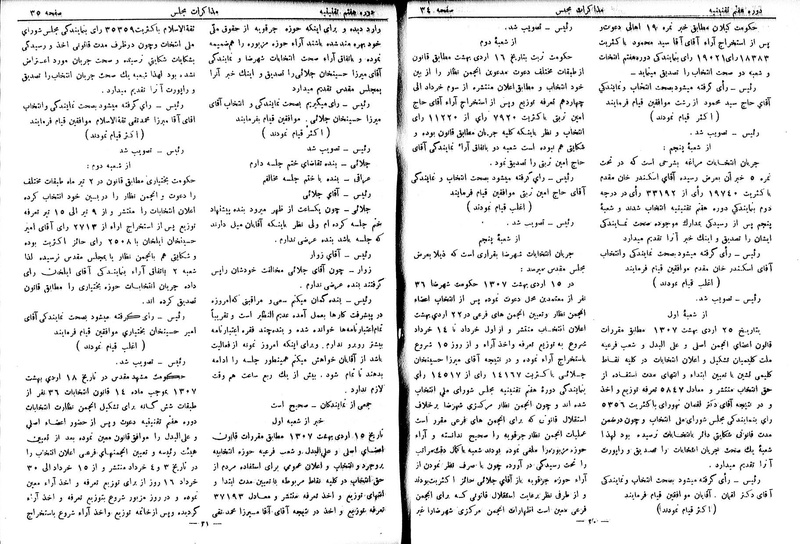 دوره هفتم تقنینیه
مذاکرات مجلس
صفحه ۳۴
حکومت گیلان مطابق خبر نمره ۱۹ اهالی دعوت و
پس از استخراج آراء آقای آقا سید محمود باکثریت
۱۸۳۸۳ رأی از ۱۹۰۲۱ رأی بنمایندگی دوره هفتم انتخاب
و شعبه در صحت انتخاب را تصدیق مینماید
رئیس ـ رأی گرفته میشود بصحت انتخاب و نمایندگی
آقای حاج سید محمود از رشت موافقین قیام فرمایند
( اکثر قیام نمودند )
رئیس ـ تصویب شد .
از شعبهٔ پنجم :
جریان انتخابات مراغه بشرحی است که در تحت
نمره ۵ خبر آن بعرض رسیده آقای اسکندر خان مقدم
باکثریت ۱۹۷۴۰ رأی از ۳۳۱۹۲ رأی در درجه
دوم بنمایندگی دوره هفتم تقنینیه انتخاب شدند و شعبهٔ
پنجم پس از رسیدگی بمدارک موجوده صحت نمایندگی
ایشان را تصدیق و اینک خبر آنرا تقدیم میدارد
رئیس ـ رأی گرفته میشود بصحت نمایندگی و انتخاب
آقای اسکندر خان مقدم موافقین قیام فرمایند
( اغلب قیام نمودند )
رئیس ـ تصویب شد .
از شعبهٔ اول
بتاریخ ۲۵ اردی بهشت ۱۳۰۷ مطابق مقررات
قانون اعضای انجمن اصلی و علی البدل و شعب فرعیه
ملت کلیمیان تشکیل و اعلان انتخابات در کلیه نقاط
کلیمی نشین با تعیین ابتداء و انتهاء مدت استفاده از
حق انتخاب منتشر و معادل ۵۸۴۷ تعرفه توزیع و اخذ
و در نتیجه آقای دکتر لقمان نهورای باکثریت ۵۳۵۶
رای بنمایندگی مجلس شورای ملی انتخاب و چون در ضمن
مدت قانونی شکایتی دائر بانتخابات نرسیده بود لهذا
شعبهٔ یک صحت جریان انتخابات را تصدیق و راپورت
آنرا تقدیم میدارد .
رئیس ـ رأی گرفته میشود بصحت انتخاب و نمایندگی
آقای دکتر لقمان . آقایان موافقین قیام فرمایند
( اکثر قیام نمودند )
رئیس ـ تصویب شد .
از شعبهٔ دوم
حکومت تربت بتاریخ ۱۶ اردی بهشت مطابق قانون
از طبقات مختلف دعوت مدعوین انجمن نظار را از بین
خود انتخاب و مطابق اعلان منتشره از سوم خرداد الی
چهاردهم تعرفه توزیع پس از استخراج آراء آقای حاج
امین تربتی باکثریت ۷۹۲۰ رأی از ۱۱۲۲۰ رأی
انتخاب و نظر باینکه کلیه جریان مطابق قانون بوده و
شکایتی هم نبوده است شعبه دو باتفاق آراء نمایندگی آقای
حاج امین تربتی را تصدیق نمود .
رئیس ـ رأی گرفته میشود بصحت انتخاب و نمایندگی
آقای حاج امین تربتی موافقین قیام فرمایند
( اغلب قیام نمودند )
رئیس ـ تصویب شد .
از شعبهٔ پنجم
جریان انتخابات شهرضا بقراری است که ذیلا بعرض
مجلس میرسد :
در ۱۵ اردی بهشت ۱۳۰۷ حکومت شهرضا ۳۶
نفر از معتمدین محل دعوت نموده پس از انتخاب اعضاء
انجمن نظار و تعیین انجمن های فرعی در ۲۲ اردی بهشت
اعلان انتخاب منتشر و از اول خرداد تا ۱۴ خرداد
شروع به توزیع تعرفه و اخذ آراء و از روز ۱۵ شروع
باستخراج آراء نموده و در نتیجه آقای میرزا حسینخان
جلائی باکثریت ۱۴۱۶۷ رأی از ۱۴۵۱۷ رأی
بنمایندگی دورهٔ هفتم تقنینیه مجلس شورای ملی انتخاب
شده اند و چون انجمن نظار مرکزی شهرضا برخلاف
استقلال قانونی که برای انجمن های فرعی مقرر است
عملیات انجمن نظار جرقویه را صحیح ندانسته و آراء
حوزه مزبوره را ملغی نموده بودند شعبه با کمال دقت مراتب
را تحت رسیدگی در آورده چون با صرف نظر نمودن از
آراء حوزه جرقویه باز آقای جلائی حائز اکثریت بودند
و از طرفی نظر برعایت استقلال قانونی که برای انجمن
فرعی معین است اظهارات انجمن مرکزی شهرضا را غیر
ـ ۲۰ ـ
دوره هفتم تقنینیه
مذاکرات مجلس
صفحه ۳۵
وارد دیده و برای اینکه حوزه جرقویه از حقوق ملی
خود بهره مند شده باشند آراء حوزه مزبوره را هم ضمیمه
نموده و باتفاق آراء صحت انتخابات شهرضا و نمایندگی
آقای میرزا حسینخان جلائی را تصدیق و اینک خبر آنرا
بمجلس مقدس تقدیم میدارد
رئیس ـ رأی میگیریم بصحت نمایندگی و انتخاب آقای
میرزا حسینخان جلائی موافقین قیام بفرمایند
( اکثر قیام نمودند )
رئیس ـ تصویب شد
جلائی ـ بنده تقاضای ختم جلسه دارم
عراقی ـ با ختم جلسه مخالفم
رئیس ـ آقای جلائی
جلائی ـ چون یکساعت از ظهر میرود بنده پیشنهاد
ختم جلسه کرده ام ولی نظر باینکه آقایان میل دارند
که جلسه باشد بنده عرضی ندارم .
رئیس ـ آقای زوار
زوار ـ چون آقای جلائی مخالفت خودشان را پس
گرفتند بنده عرضی ندارم .
رئیس ـ بنده گمان میکنم سعی و مراقبتی که امروزه
در پیشرفت کارها بعمل آمده عدیم النظیر است و تقریباً
تمام اعتبارنامه ها خوانده شده و بنده چند فقره اعتبارنامه
بیشتر روبرو نداریم . و برای اینکه امروز نمونه از فعالیت
باشد از آقایان خواهش میکنم همینطور جلسه را ادامه
بدهند تا تمام شود . بیش از یک ربع ساعت هم وقت
لازم ندارد .
جمعی از نمایندگان ـ صحیح است
خبر از شعبه اول
تاریخ ۱۵ اردی بهشت ۱۳۰۷ مطابق مقررات قانون
اعضای اصلی و علی البدل و شعب فرعیه حوزه انتخابیه
بروجرد و انتخاب و اعلان عمومی برای استفاده مردم از
حق انتخاب در کلیه نقاط مربوطه با تعیین مدت ابتدا و
انتهای توزیع و اخذ تعرفه منتشر و معادل ۳۷۱۹۳
تعرفه توزیع و اخذ در نتیجه آقای آقا میرزا محمد تقی
ثقة الاسلام باکثریت ۳۵۳۵۹ رای بنمایندگی مجلس شورای
ملی انتخاب و چون در ظرف مدت قانونی اخذ و رسیدگی
بشکایات شکایتی نرسیده و صحت جریان مورد اعتراض
نشده بود لهذا شعبه یک صحت جریان انتخاب را تصدیق
و راپورت آنرا تقدیم میدارد .
رئیس ـ رأی گرفته میشود بصحت نمایندگی و انتخاب
آقای آقا میرزا محمد تقی ثقة الاسلام موافقین قیام فرمایند
( اکثر قیام نمودند )
رئیس ـ تصویب شد .
از شعبه دوم :
حکومت بختیاری مطابق قانون در ۲ تیر ماه طبقات مختلف
را دعوت و انجمن نظار را در بین خود انتخاب کرده
اعلان انتخابات را منتشر و از ۹ تیر الی ۱۵ تیر تعرفه
توزیع پس از استخراج آراء از ۲۷۱۳ رای آقای امیر
حسینخان ایلخان با ۲۵۰۸ رای حائز اکثریت بوده
و شکایتی هم بانجمن نظار یا بمجلس مقدس نرسیده لذا
شعبه ۲ باتفاق آراء بنمایندگی آقای ایلخان رای
داده جریان انتخابات حوزه بختیاری را مطابق قانون
تصدیق کرده اند .
رئیس ـ رای گرفته میشود بصحت نمایندگی آقای
امیر حسینخان بختیاری موافقین قیام فرمایند
( اغلب قیام نمودند )
رئیس ـ تصویب شد .
حکومت مشهد مقدس در تاریخ ۱۸ اردی بهشت
۱۳۰۷ بموجب ماده ۱۴ قانون انتخابات ۳۶ نفر از
طبقات شش گانه برای تشکیل انجمن نظارت انتخابات
دوره هفتم تقنینیه دعوت و پس از حضور اعضاء اصلی
و علی البدل را موافق قانون معین نموده بعد از تعیین
هیئت رئیسه و تعیین انجمنهای فرعی اعلان انتخاب را
در تاریخ ۳ و ۴ خرداد منتشر و از ۱۵ خرداد الی ۳۰
خرداد ۱۶ روز از برای توزیع تعرفه و اخذ آراء معین
نموده و در روز مزبور شروع بتوزیع تعرفه و اخذ آراء
گردیده پس از خاتمه توزیع و اخذ آراء شروع باستخراج
ـ ۲۱ ـ